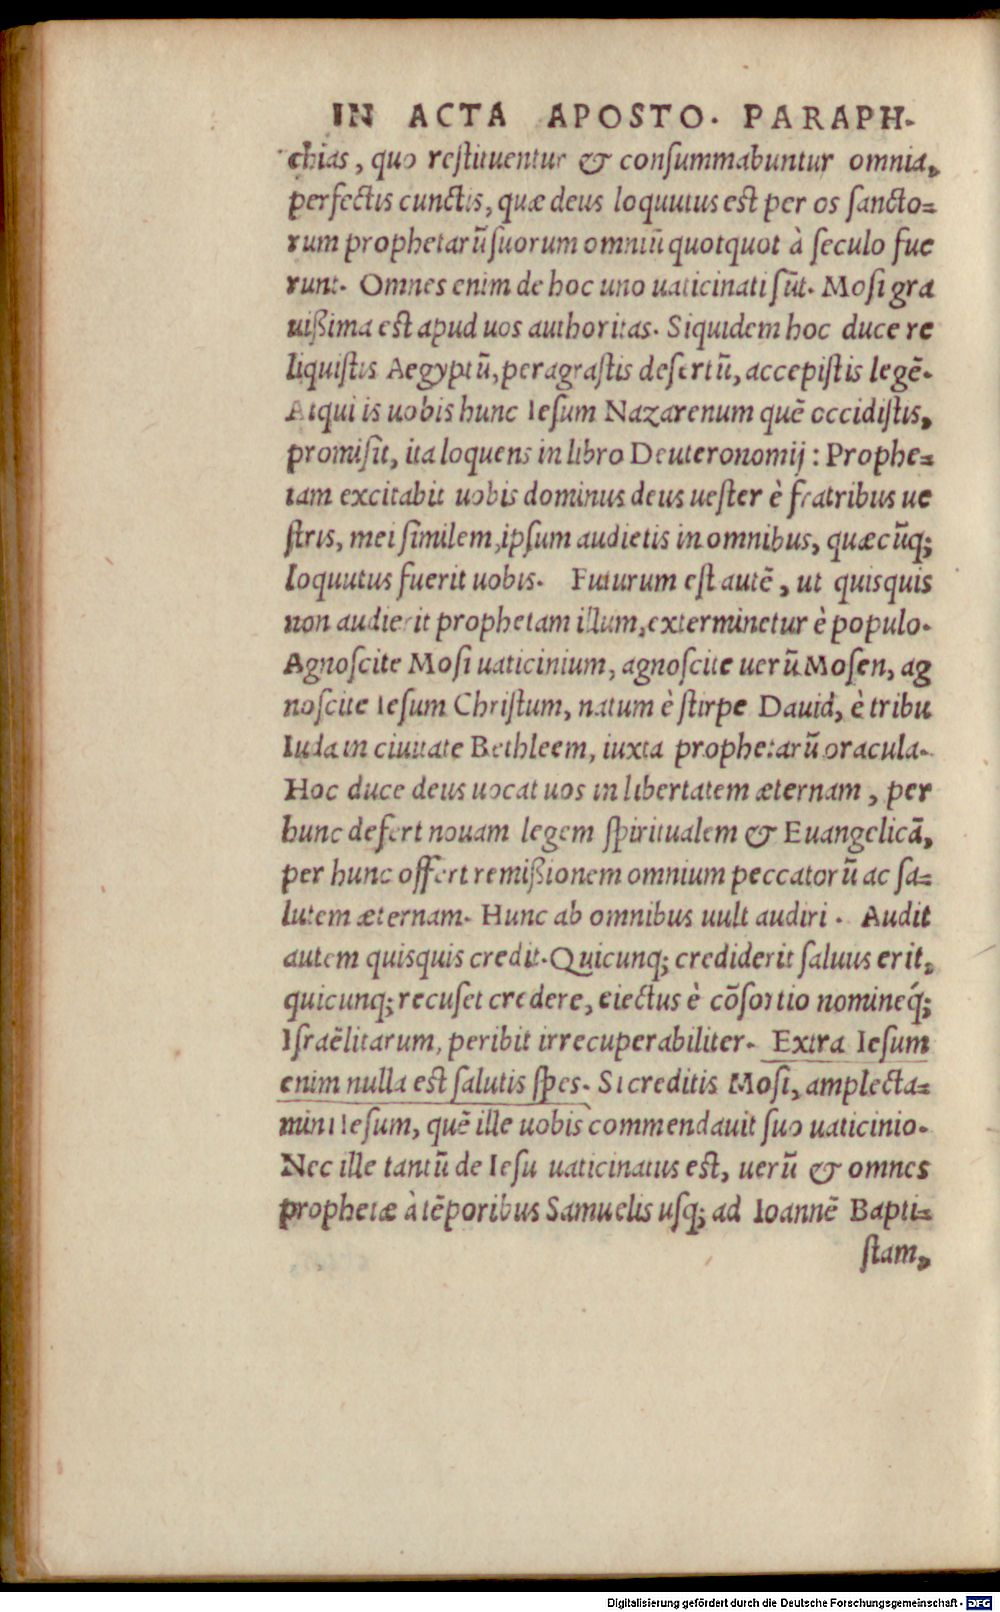 IN ACTA APOSTO. PARAPH.
chias, quo restituentur & consummabuntur omnia,
perfectis cunctis, quæ deus loquutus est per os sancto=
rum prophetarū suorum omniū quotquot à seculo fue
runt. Omnes enim de hoc uno uaticinati sūt. Mosi gra
uißima est apud uos authoritas. Siquidem hoc duce re
liquistis Aegyptū, peragrastis desertū, accepistis legē.
Atqui is uobis hunc Iesum Nazarenum quē occidistis,
promisit, ita loquens in libro Deuteronomij : Prophe=
tam excitabit uobis dominus deus uester è fratribus ue
stris, mei similem, ipsum audietis in omnibus, quæcūq;
loquutus fuerit uobis. Futurum est autē, ut quisquis
non audierit prophetam illum, exterminetur è populo.
Agnoscite Mosi uaticinium, agnoscite uerū Mosen, ag
noscite Iesum Christum, natum è stirpe Dauid, è tribu
Iuda in ciuitate Bethleem, iuxta prophetarū oracula.
Hoc duce deus uocat uos in libertatem æternam, per
hunc defert nouam legem spiritualem & Euangelicā,
per hunc offert remißionem omnium peccatorū ac sa=
lutem æternam. Hunc ab omnibus uult audiri. Audit
autem quisquis credit. Quicunq; crediderit saluus erit,
quicunq; recuset credere, eiectus è cōsortio nomineq́;
Israëlitarum, peribit irrecuperabiliter. Extra Iesum
enim nulla est salutis spes. Si creditis Mosi, amplecta=
mini Iesum, quē ille uobis commendauit suo uaticinio.
Nec ille tantū de Iesu uaticinatus est, uerū & omnes
prophetæ à tēporibus Samuelis usq; ad Ioannē Bapti=
stam,
Digitalisierung gefördert durch die Deutsche Forschungsgemeinschaft - DFG